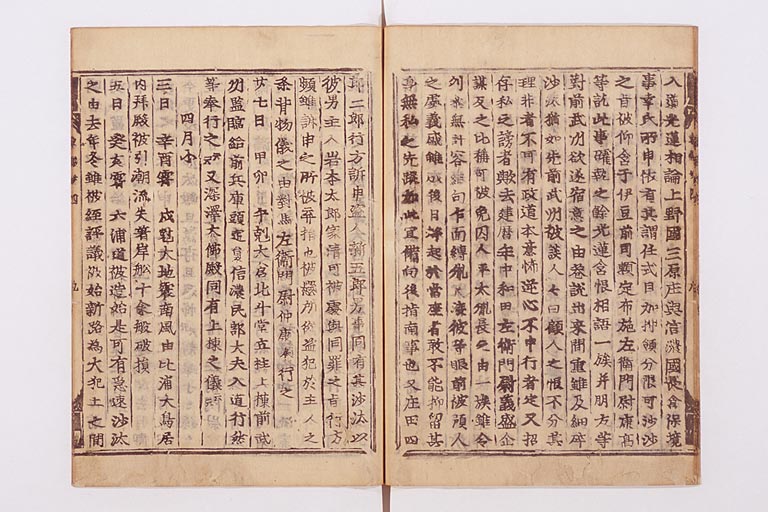 入道光蓮相論上野國三原庄与信濃國長倉保境
事幸氏所申依有其謂任式目加押領分限可沙汰
之旨被仰含于伊豆前司頼定布施左衛門尉康高
等訖此事確執之餘光蓮含恨相語一族并朋友等
對前武州欲遂宿意之由巷説出來間重雖及細碎
沙汰猶如先前武州被談人々曰顧人之恨不分其
理非者不可有政道本意怖逆心不申行者定又招
存私之謗者歟去建暦年中和田左衛門尉義盛企
謀叛之比稱可被免囚人平太胤長之由一族雖令
列參無許容結句乍面縛胤長渡彼等眼前被預人
之處義盛雖成後日起於當座者敢不能抑留其
身無私之先蹤如此宜備向後指南事也又庄田四
郎二郎行方訴申盗人新五郎男事同有其沙汰以
彼男主人岩本太郎家清可被處與同罪之由行方
頻雖訴申之所被弃捐也被擯所從盗犯於主人之
条背物儀之由對馬左衛門尉仲康奉行之
廿七日 甲卯 午剋大倉北斗堂立柱上棟前武
州監臨給前兵庫頭定員信濃民部大夫入道行然
等奉行之云々又深澤大佛殿同有上棟之儀云々
四月小
三日 辛酉霽 戌剋大地震南風由比浦大鳥居
内拜殿被引潮流失着岸舩十余艘破損
五日 癸亥霽 六浦道被造始是可有急速沙汰
之由去年冬雖被經評議被始新路為大犯土之間